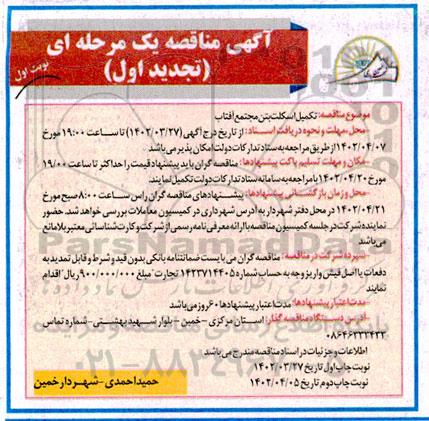 آگهی مناقصه یک مرحله ای
(تجدید اول)
نوبت اول
موضوع مناقصه: تکمیل اسکلت بتن مجتمع آفتاب
محل، مهلت و نحوه دریافت اسناد: از تاریخ درج آگهی (۱۴۰۲/۰۳/۲۷) تا ساعت ۱۹:۰۰ مورخ
۱۴۰۲/۰۴/۰۷ از طریق مراجعه به ستاد تدارکات دولت امکان پذیر می باشد
مکان و مهلت تسلیم پاکت پیشنهادها: مناقصه گران باید پیشنهاد قیمت را حداکثر تا ساعت ۱۹/۰۰
مورخ ۱۴۰۲/۰۴/۲۰ با مراجعه به سامانه ستاد تدارکات دولت تکمیل نمایند.
محل و زمان بازگشائی پیشنهادها: پیشنهادهای مناقصه گران راس ساعت ۸:۰۰ صبح مورخ
۱۴۰۲/۰۴/۲۱ در محل دفتر شهردار به آدرس شهرداری در کمیسیون معاملات بررسی خواهد شد، حضور
نماینده شرکت در جلسه کمیسیون مناقصه با ارائه معرفی نامه رسمی از شرکت و کارت شناسائی معتبر بلامانع
می باشد
سپرده شرکت در مناقصه: مناقصه گران می بایست ضمانتنامه بانکی بدون قید و شرط و قابل تمدید به
دفعات یا اصل فیش واریز وجه به حساب شماره ۱۴۲۳۷۱۴۴۰۵ تجارت "مبلغ ۹۰۰/۰۰۰/۰۰۰ ریال" اقدام
نمایند
مدت اعتبار پیشنهادها: مدت اعتبار پیشنهادها ۶۰ روز می باشد
آدرس دستگاه مناقصه گذار: استان مرکزی - خمین - بلوار شهید بهشتی - شماره تماس
۰۸۶۴۶۳۳۳۴۳۳
اطلاعات و جزئیات در اسناد مناقصه مندرج می باشد
نوبت چاپ اول تاریخ ۱۴۰۲/۰۳/۲۷
نوبت چاپ دوم تاریخ ۱۴۰۲/۰۴/۰۵
حمید احمدی - شهردار خمین
ParsNamadData